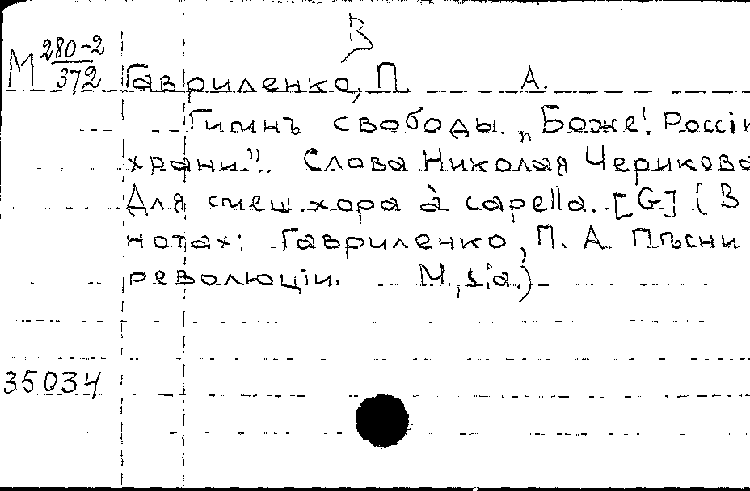 В
М 280-2/372
Гавриленко, П. А.
Гимнъ свободы. „Боже! Россiю
храни". Слова Николая Черикова
Для смеш. хора à capella. [G] (В
нотах: Гавриленко, П. А. Пѣсни
революцiи. М, s.a.)
35034